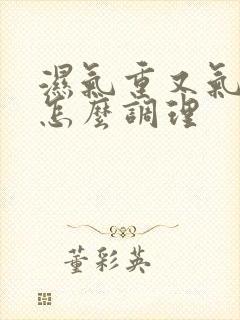 濕氣重又氣
怎麼調理
董彩英